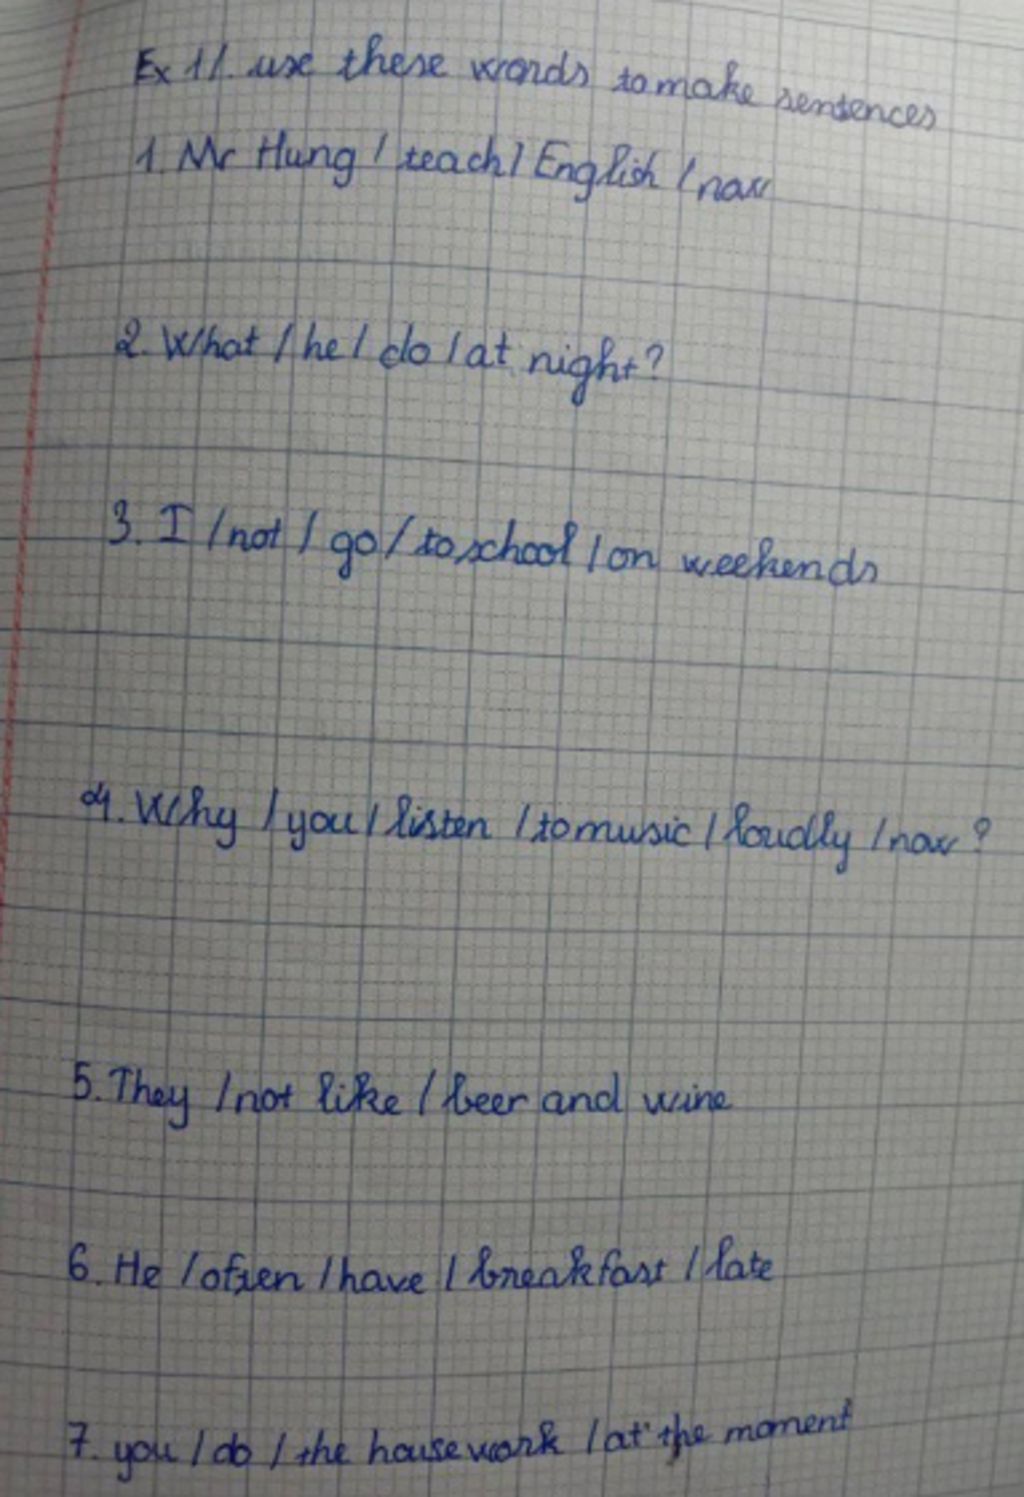 Ex 1/. use these words to make sentences
1. Mr Hung / teach / English / now
2. What / he / do / at night?
3. I / not / go / to school / on weekends
4. Why / you / listen / to music / loudly / now?
5. They / not like / beer and wine
6. He / often / have / breakfast / late
7. you / do / the housework / at the moment